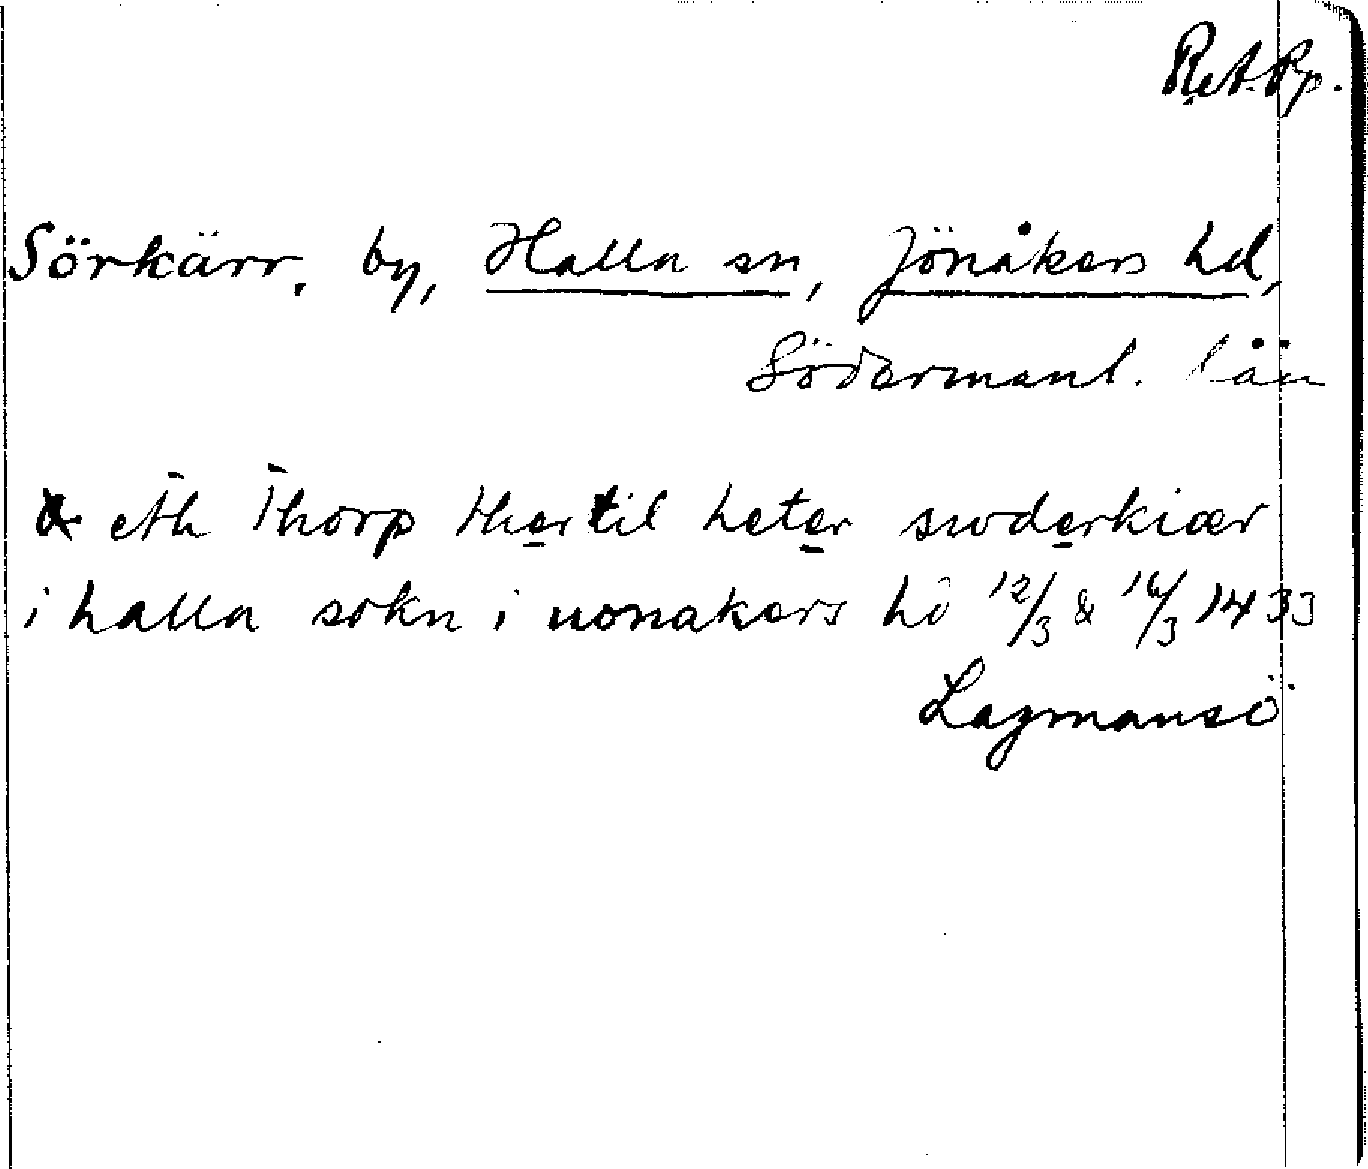 R.A. Pp.
Sörkärr, by, Halla sn, Jönåkers hd,
Södermanl. län
& eth Thorp ther til heter swderkiær
i halla sokn i uonakers hd 12/3 & 16/3 1433
Lagmansö